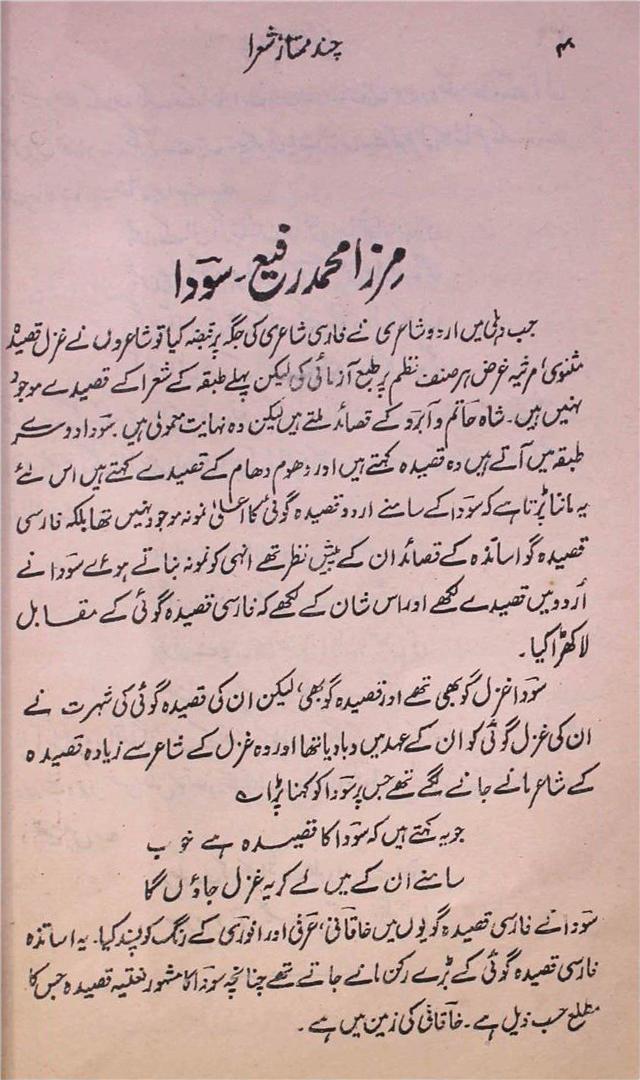 ۴۸
چند ممتاز شعرا
مرزا محمد رفیع۔ سودا
جب دہلی میں اردو شاعری نے فارسی شاعری کی جگہ پر قبضہ کیا تو شاعروں نے غزل قصیدہ
مثنوی، مرثیہ غرض ہر صنف نظم پر طبع آزمائی کی لیکن پہلے طبقہ کے شعرا کے قصیدے موجود
نہیں ہیں۔ شاہ حاتم و آبرو کے قصائد ملتے ہیں لیکن وہ نہایت معمولی ہیں۔ سودا دوسرے
طبقہ میں آتے ہیں وہ قصیدہ کہتے ہیں اور دھوم دھام کے قصیدے کہتے ہیں اس لئے
یہ ماننا پڑتا ہے کہ سودا کے سامنے اردو قصیدہ گوئی کا اعلیٰ نمونہ موجود نہیں تھا بلکہ فارسی
قصیدہ گو اساتذہ کے قصائد ان کے پیش نظر تھے انہی کو نمونہ بناتے ہوئے سودا نے
اُردو میں قصیدے لکھے اور اس شان کے لکھے کہ فارسی قصیدہ گوئی کے مقابل
لا کھڑا کیا۔
سودا غزل گو بھی تھے اور قصیدہ گو بھی، لیکن ان کی قصیدہ گوئی کی شہرت نے
ان کی غزل گوئی کو ان کے عہد میں دبا دیا تھا اور وہ غزل کے شاعر سے زیادہ قصیدہ
کے شاعر مانے جانے لگے تھے جس پر سودا کو کہنا پڑا ؎
جو یہ کہتے ہیں کہ سودا کا قصیدہ ہے خوب
سامنے ان کے میں لے کر یہ غزل جاؤں گا
سودا نے فارسی قصیدہ گویوں میں خاقانی، عرفی اور انوری کے رنگ کو پسند کیا۔ یہ اساتذہ
فارسی قصیدہ گوئی کے بڑے رکن مانے جاتے تھے چنانچہ سودا کا مشہور نعتیہ قصیدہ جس کا
مطلع حسب ذیل ہے۔ خاقانی کی زمین میں ہے۔